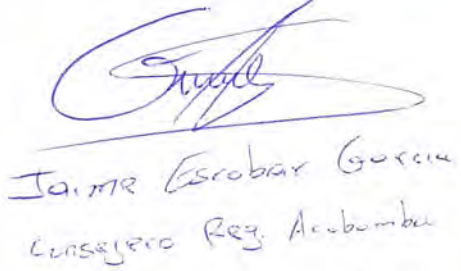 Jaime Escobar Garcia
Consejero Reg. Acobamba